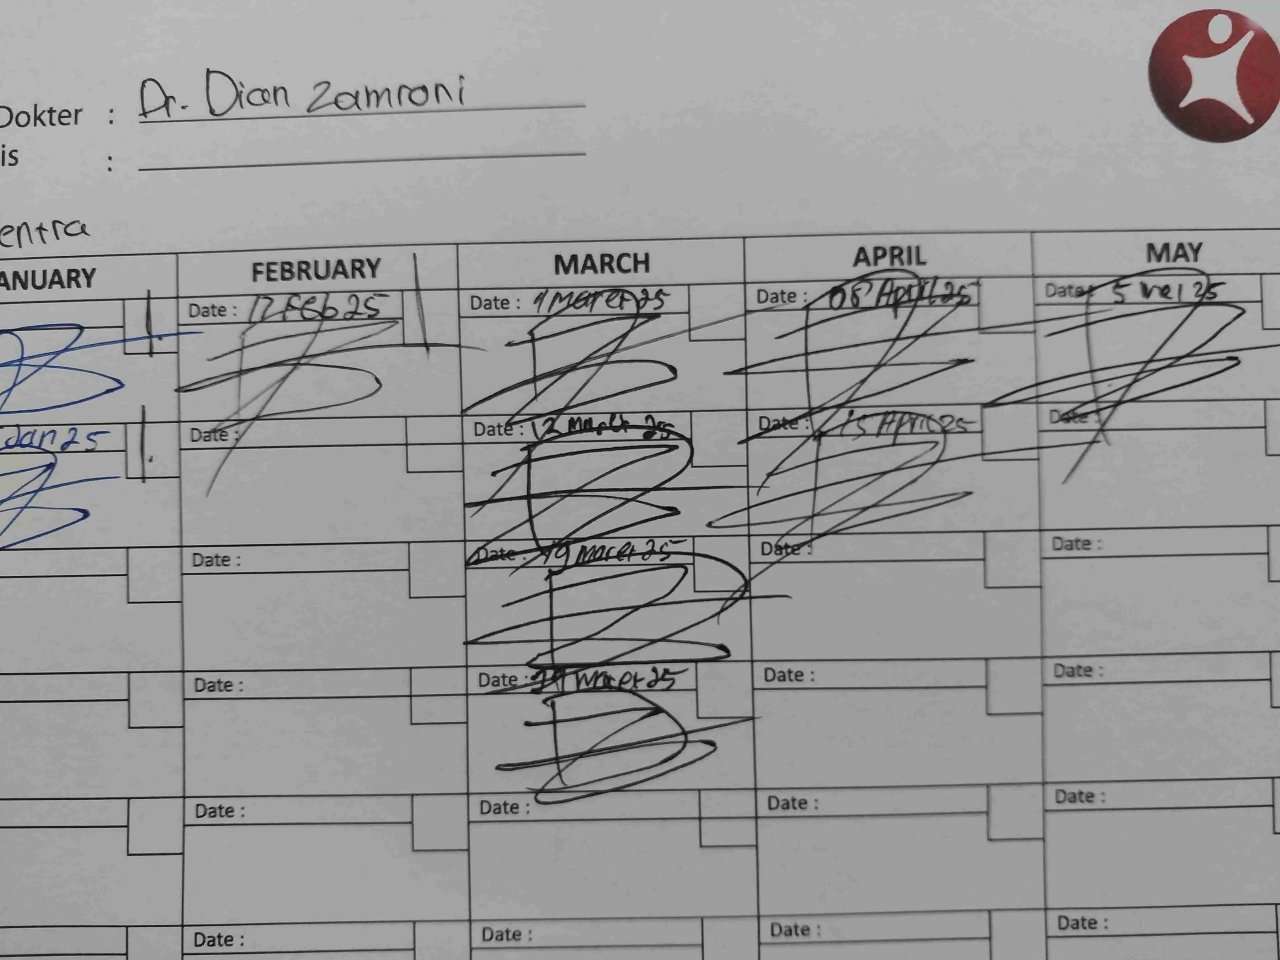 Dokter : Dr. Dian Zamroni
is :
entra
ANUARY FEBRUARY MARCH APRIL MAY
Date : 12 Feb 25 Date : Maret 25 Date : 08 April 25 Date : 5 Mei 25
Jan 25 Date : Date : 12 Maret 25 Date : 15 April 25 Date :
Date : Date : 19 Maret 25 Date : Date :
Date : Date : Maret 25 Date : Date :
Date : Date : Date : Date :
Date : Date : Date : Date :